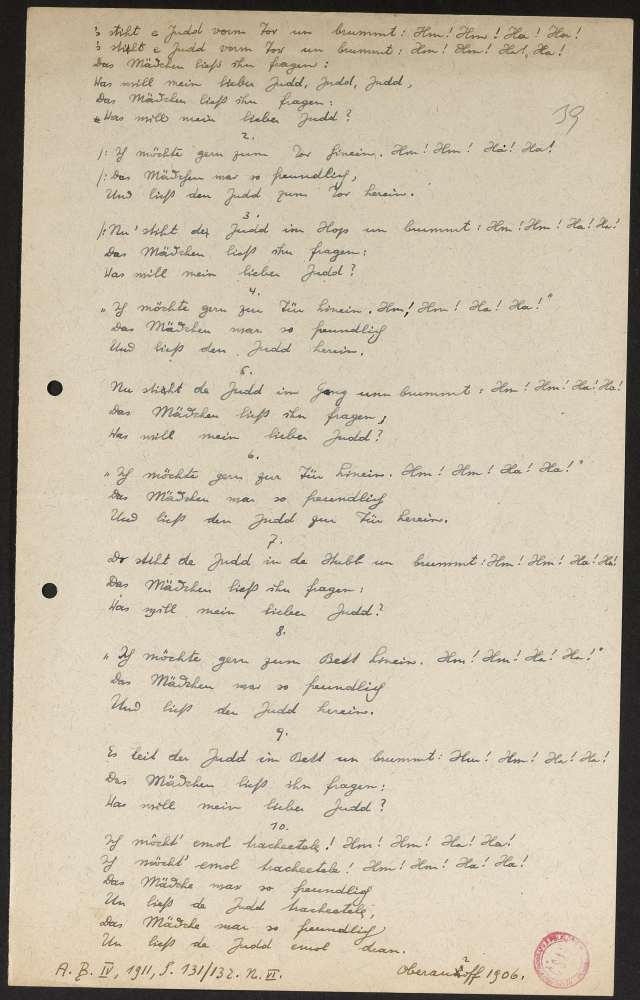 's stiht e Judd vorm Tor un brummt: Hm! Hm! Ha! Ha!
's stiht e Judd vorm Tor un brummt: Hm! Hm! Ha! Ha!
Das Mädchen ließ ihn fragen:
Was will mein lieber Judd, Judd, Judd,
Das Mädchen ließ ihn fragen:
Was will mein lieber Judd?
39
2.
/: Ich möchte gern zum Tor hinein. Hm! Hm! Ha! Ha!
/: Das Mädchen war so freundlich,
Und ließ den Judd zum Tor herein.
3.
/: Nu' stiht der Judd im Hop un brummt: Hm! Hm! Ha! Ha!
Das Mädchen ließ ihn fragen:
Was will mein lieber Judd?
4.
"Ich möchte gern zur Tür hinein. Hm! Hm! Ha! Ha!"
Das Mädchen war so freundlich
Und ließ den Judd herein.
5.
Nu stiht de Judd im Gang unn brummt: Hm! Hm! Ha! Ha!
Das Mädchen ließ ihn fragen,
Was will mein lieber Judd?
6.
"Ich möchte gern zur Tür hinein. Hm! Hm! Ha! Ha!"
Das Mädchen war so freundlich
Und ließ den Judd zur Tür herein.
7.
Do stiht de Judd in de Stubb un brummt: Hm! Hm! Ha! Ha!
Das Mädchen ließ ihn fragen:
Was will mein lieber Judd?
8.
"Ich möchte gern zum Bett hinein. Hm! Hm! Ha! Ha!"
Das Mädchen war so freundlich
Und ließ den Judd herein.
9.
Es leit der Judd im Bett un brummt: Hm! Hm! Ha! Ha!
Das Mädchen ließ ihn fragen:
Was will mein lieber Judd?
10.
Ich möcht' emol Hm! Hm! Ha! Ha!
Ich möcht' emol Hm! Hm! Ha! Ha!
Das Mädche war so freundlich
Un ließ de Judd
Das Mädche war so freundlich
Un ließ de Judd emol dran.
A. B. IV, 1911, S. 131/132. N. VI.
1906.